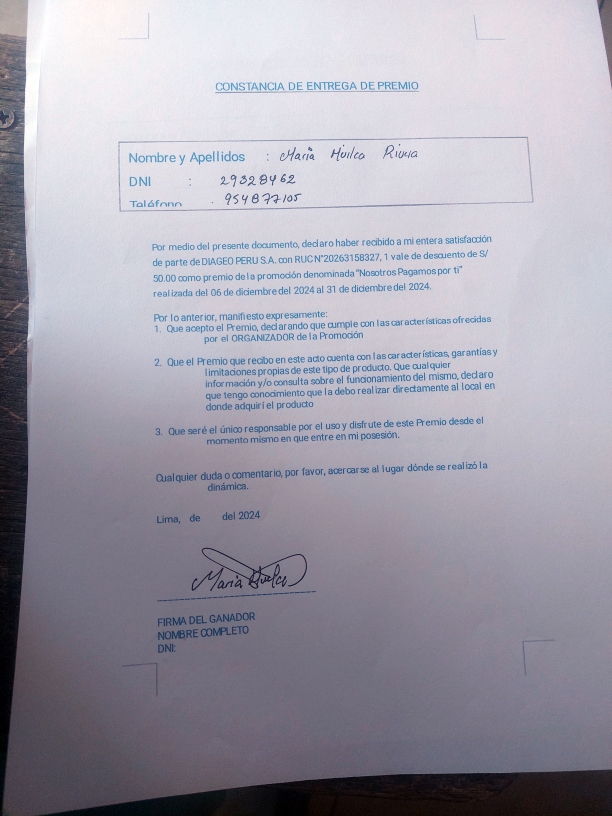 CONSTANCIA DE ENTREGA DE PREMIO
Nombre y Apellidos : Maria Huilca Rivera
DNI : 29328462
Teléfono : 954877105
Por medio del presente documento, declaro haber recibido a mi entera satisfacción
de parte de DIAGEO PERU S.A. con RUC N°20263158327, 1 vale de descuento de S/
50.00 como premio de la promoción denominada "Nosotros Pagamos por ti"
realizada del 06 de diciembre del 2024 al 31 de diciembre del 2024.
Por lo anterior, manifiesto expresamente:
1. Que acepto el Premio, declarando que cumple con las características ofrecidas
por el ORGANIZADOR de la Promoción
2. Que el Premio que recibo en este acto cuenta con las características, garantías y
limitaciones propias de este tipo de producto. Que cualquier
información y/o consulta sobre el funcionamiento del mismo, declaro
que tengo conocimiento que la debo realizar directamente al local en
donde adquirí el producto
3. Que seré el único responsable por el uso y disfrute de este Premio desde el
momento mismo en que entre en mi posesión.
Cualquier duda o comentario, por favor, acercarse al lugar dónde se realizó la
dinámica.
Lima, de del 2024
Maria Huilca
FIRMA DEL GANADOR
NOMBRE COMPLETO
DNI: